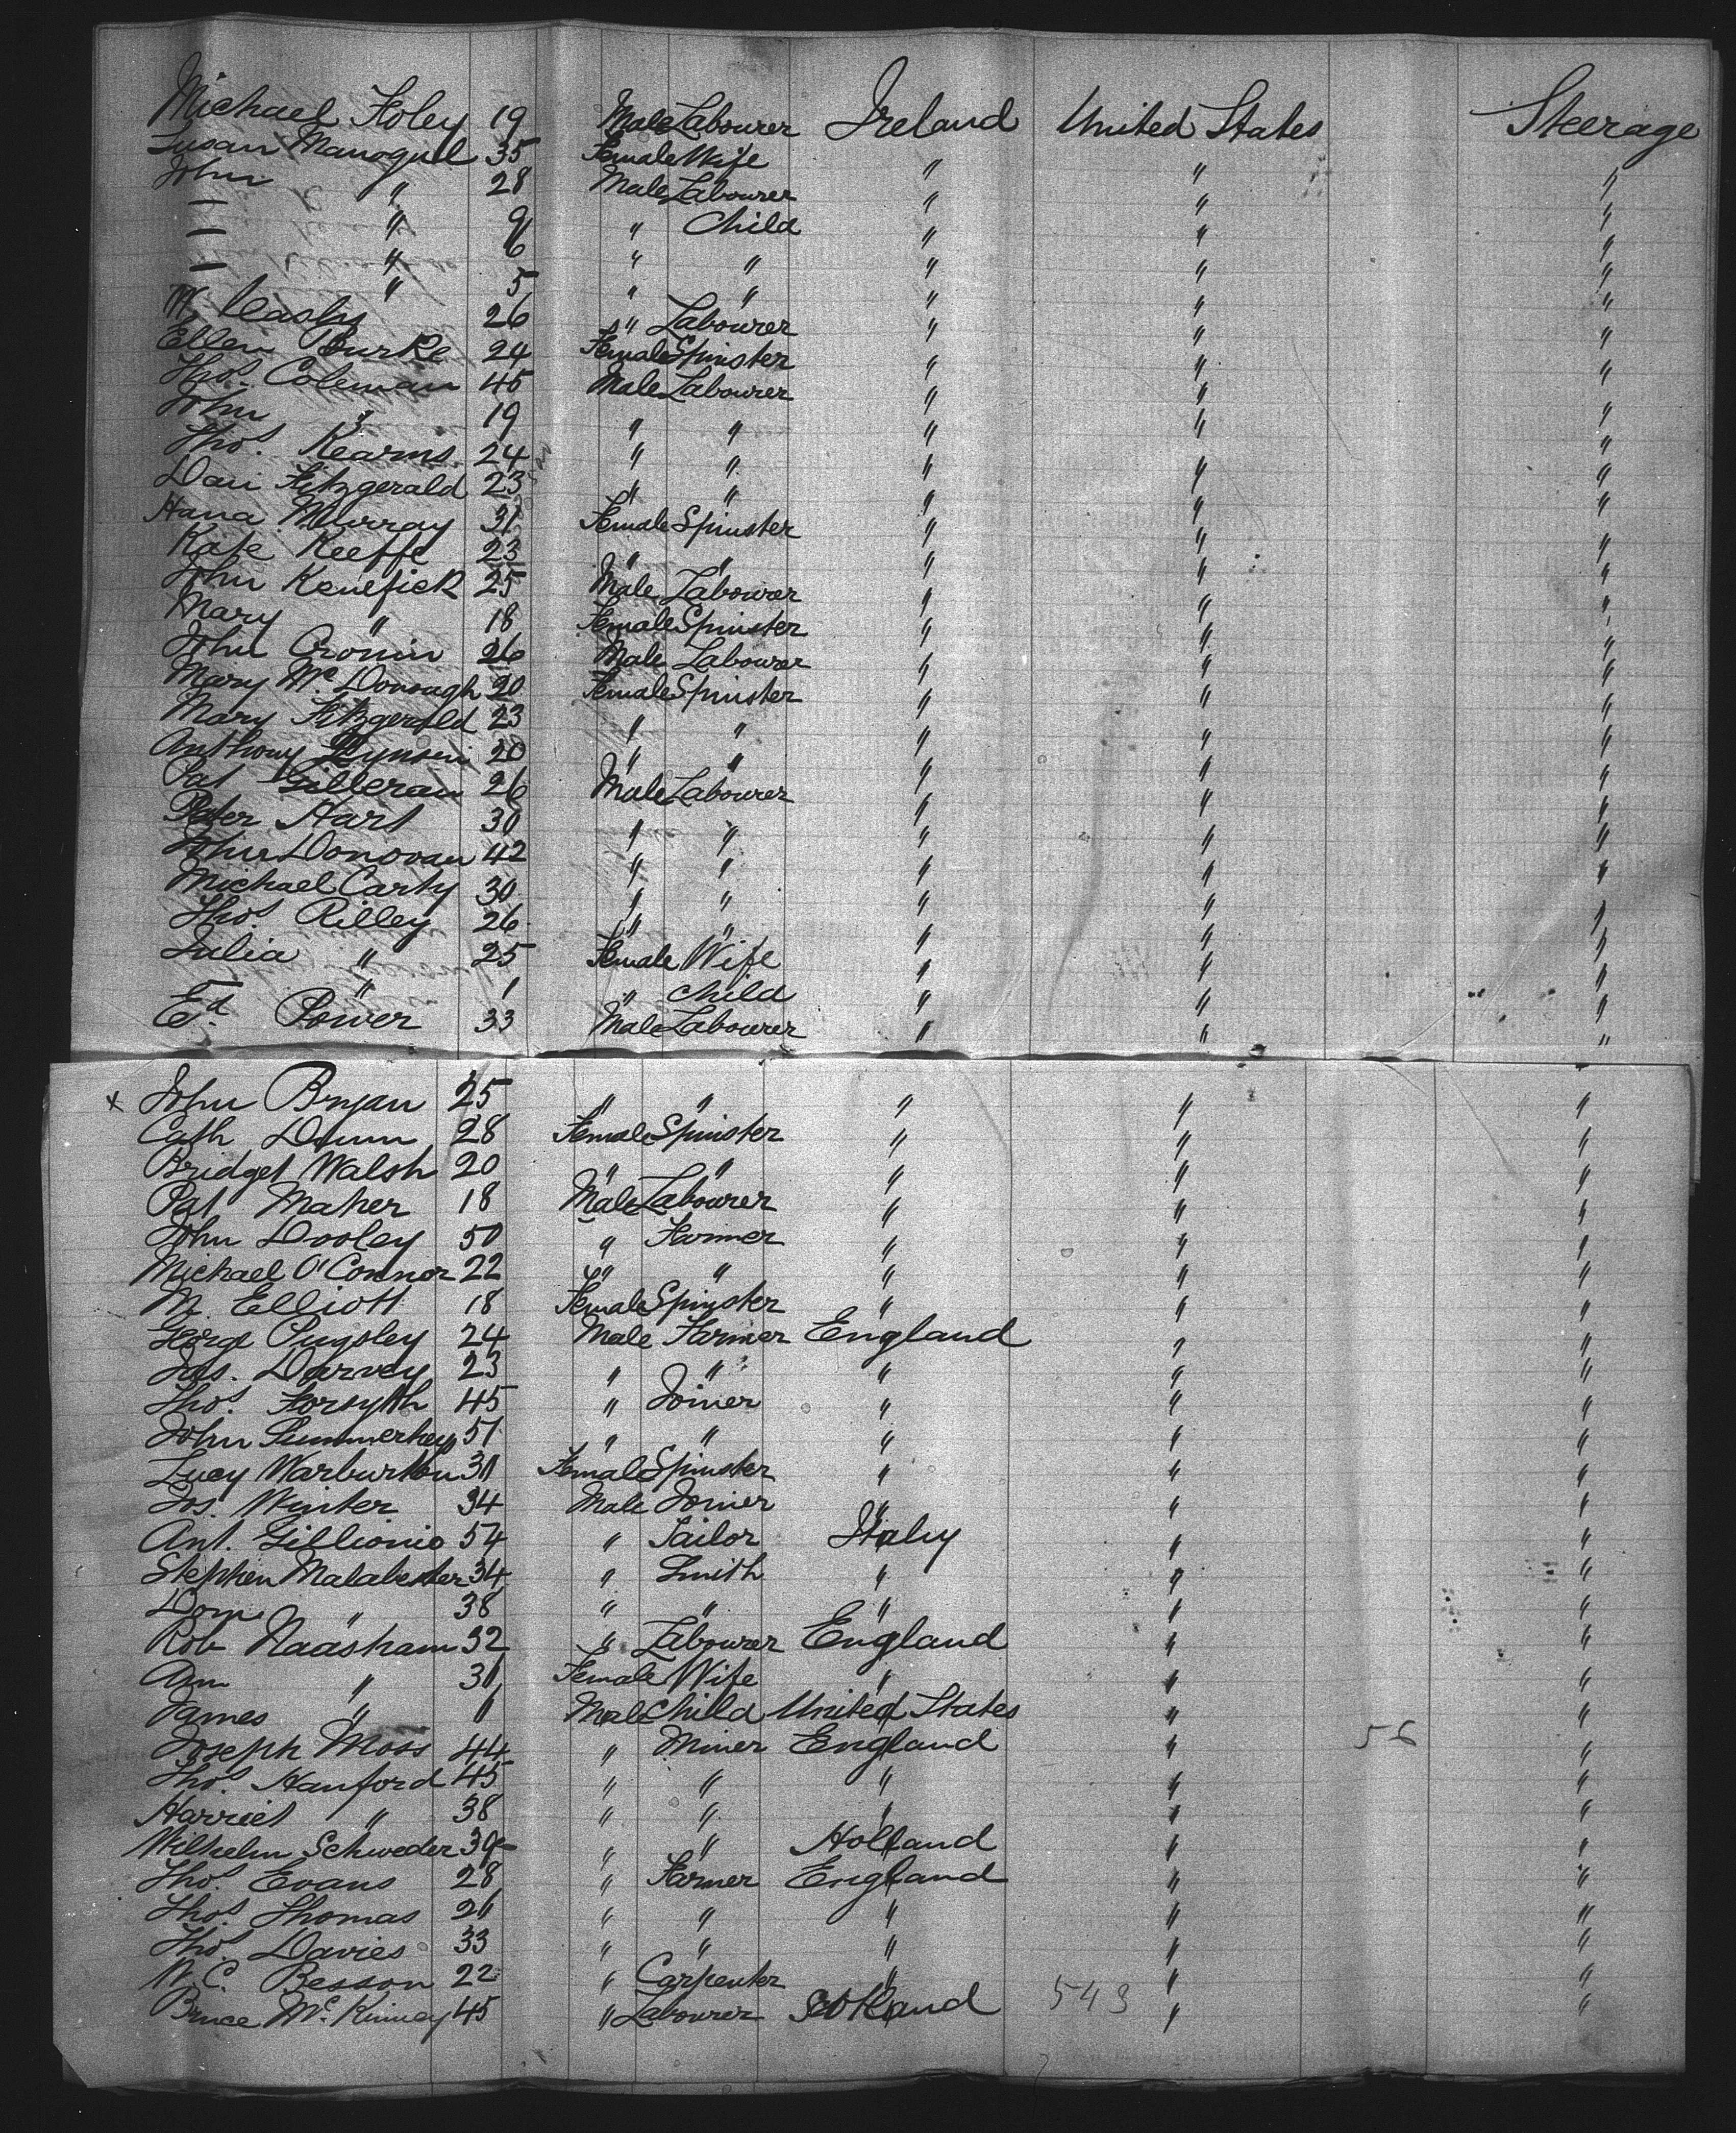 Michael Foley 19 Male Labourer Ireland United States Steerage
Susan 35 Female Wife " " "
John " 28 Male Labourer " " "
— " 9 " Child " " "
— " 6 " " " " "
— " 5 " " " " "
26 " Labourer " " "
Ellen Burke 24 Female Spinster " " "
Thos. Coleman 45 Male Labourer " " "
John " 19 " " " " "
Thos. Kearns 24 " " " " "
Dan Fitzgerald 23 " " " " "
Hana Murray 31 Female Spinster " " "
Kate Keeffe 23 " " " " "
John Kenefick 25 Male Labourer " " "
Mary " 18 Female Spinster " " "
John Cronin 26 Male Labourer " " "
Mary McDonough 20 Female Spinster " " "
Mary Fitzgerald 23 " " " " "
Anthony 20 " " " " "
Pat Gilleran 26 Male Labourer " " "
Peter Hart 30 " " " " "
John Donovan 42 " " " " "
Michael Carty 30 " " " " "
Thos. Rilley 26 " " " " "
Julia " 25 Female Wife " " "
— " 1 " Child " " "
Ed. Power 33 Male Labourer " " "
x John Bryan 25 " " " " "
Cath Dunn 28 Female Spinster " " "
Bridget Walsh 20 " " " " "
Pat Maher 18 Male Labourer " " "
John Dooley 50 " Farmer " " "
Michael O'Connor 22 " " " " "
M. Elliott 18 Female Spinster " " "
George Pugsley 24 Male Farmer England " "
Jas. Darvey 23 " " " " "
Thos. Forsyth 45 " Joiner " " "
John Summerhays 51 " " " " "
Lucy Warburton 31 Female Spinster " " "
Jos. Winter 34 Male Joiner " " "
Ant. Gillionio 54 " Tailor Italy " "
Stephen Malabester 34 " Smith " " "
Dom " 38 " " " " "
Rob Naasham 32 " Labourer England " "
Ann " 31 Female Wife " " "
James " 1 Male Child United States " "
Joseph Moss 44 " Miner England " 56 "
Thos Hanford 45 " " " " "
Harriet " 38 " " " " "
Wilhelm Schweder 39 " " Holland " "
Thos. Evans 28 " Farmer England " "
Thos. Thomas 26 " " " " "
Thos. Davies 33 " " " " "
W. C. Besson 22 " Carpenter " " "
Bruce McKinney 45 " Labourer Scotland 543 " "